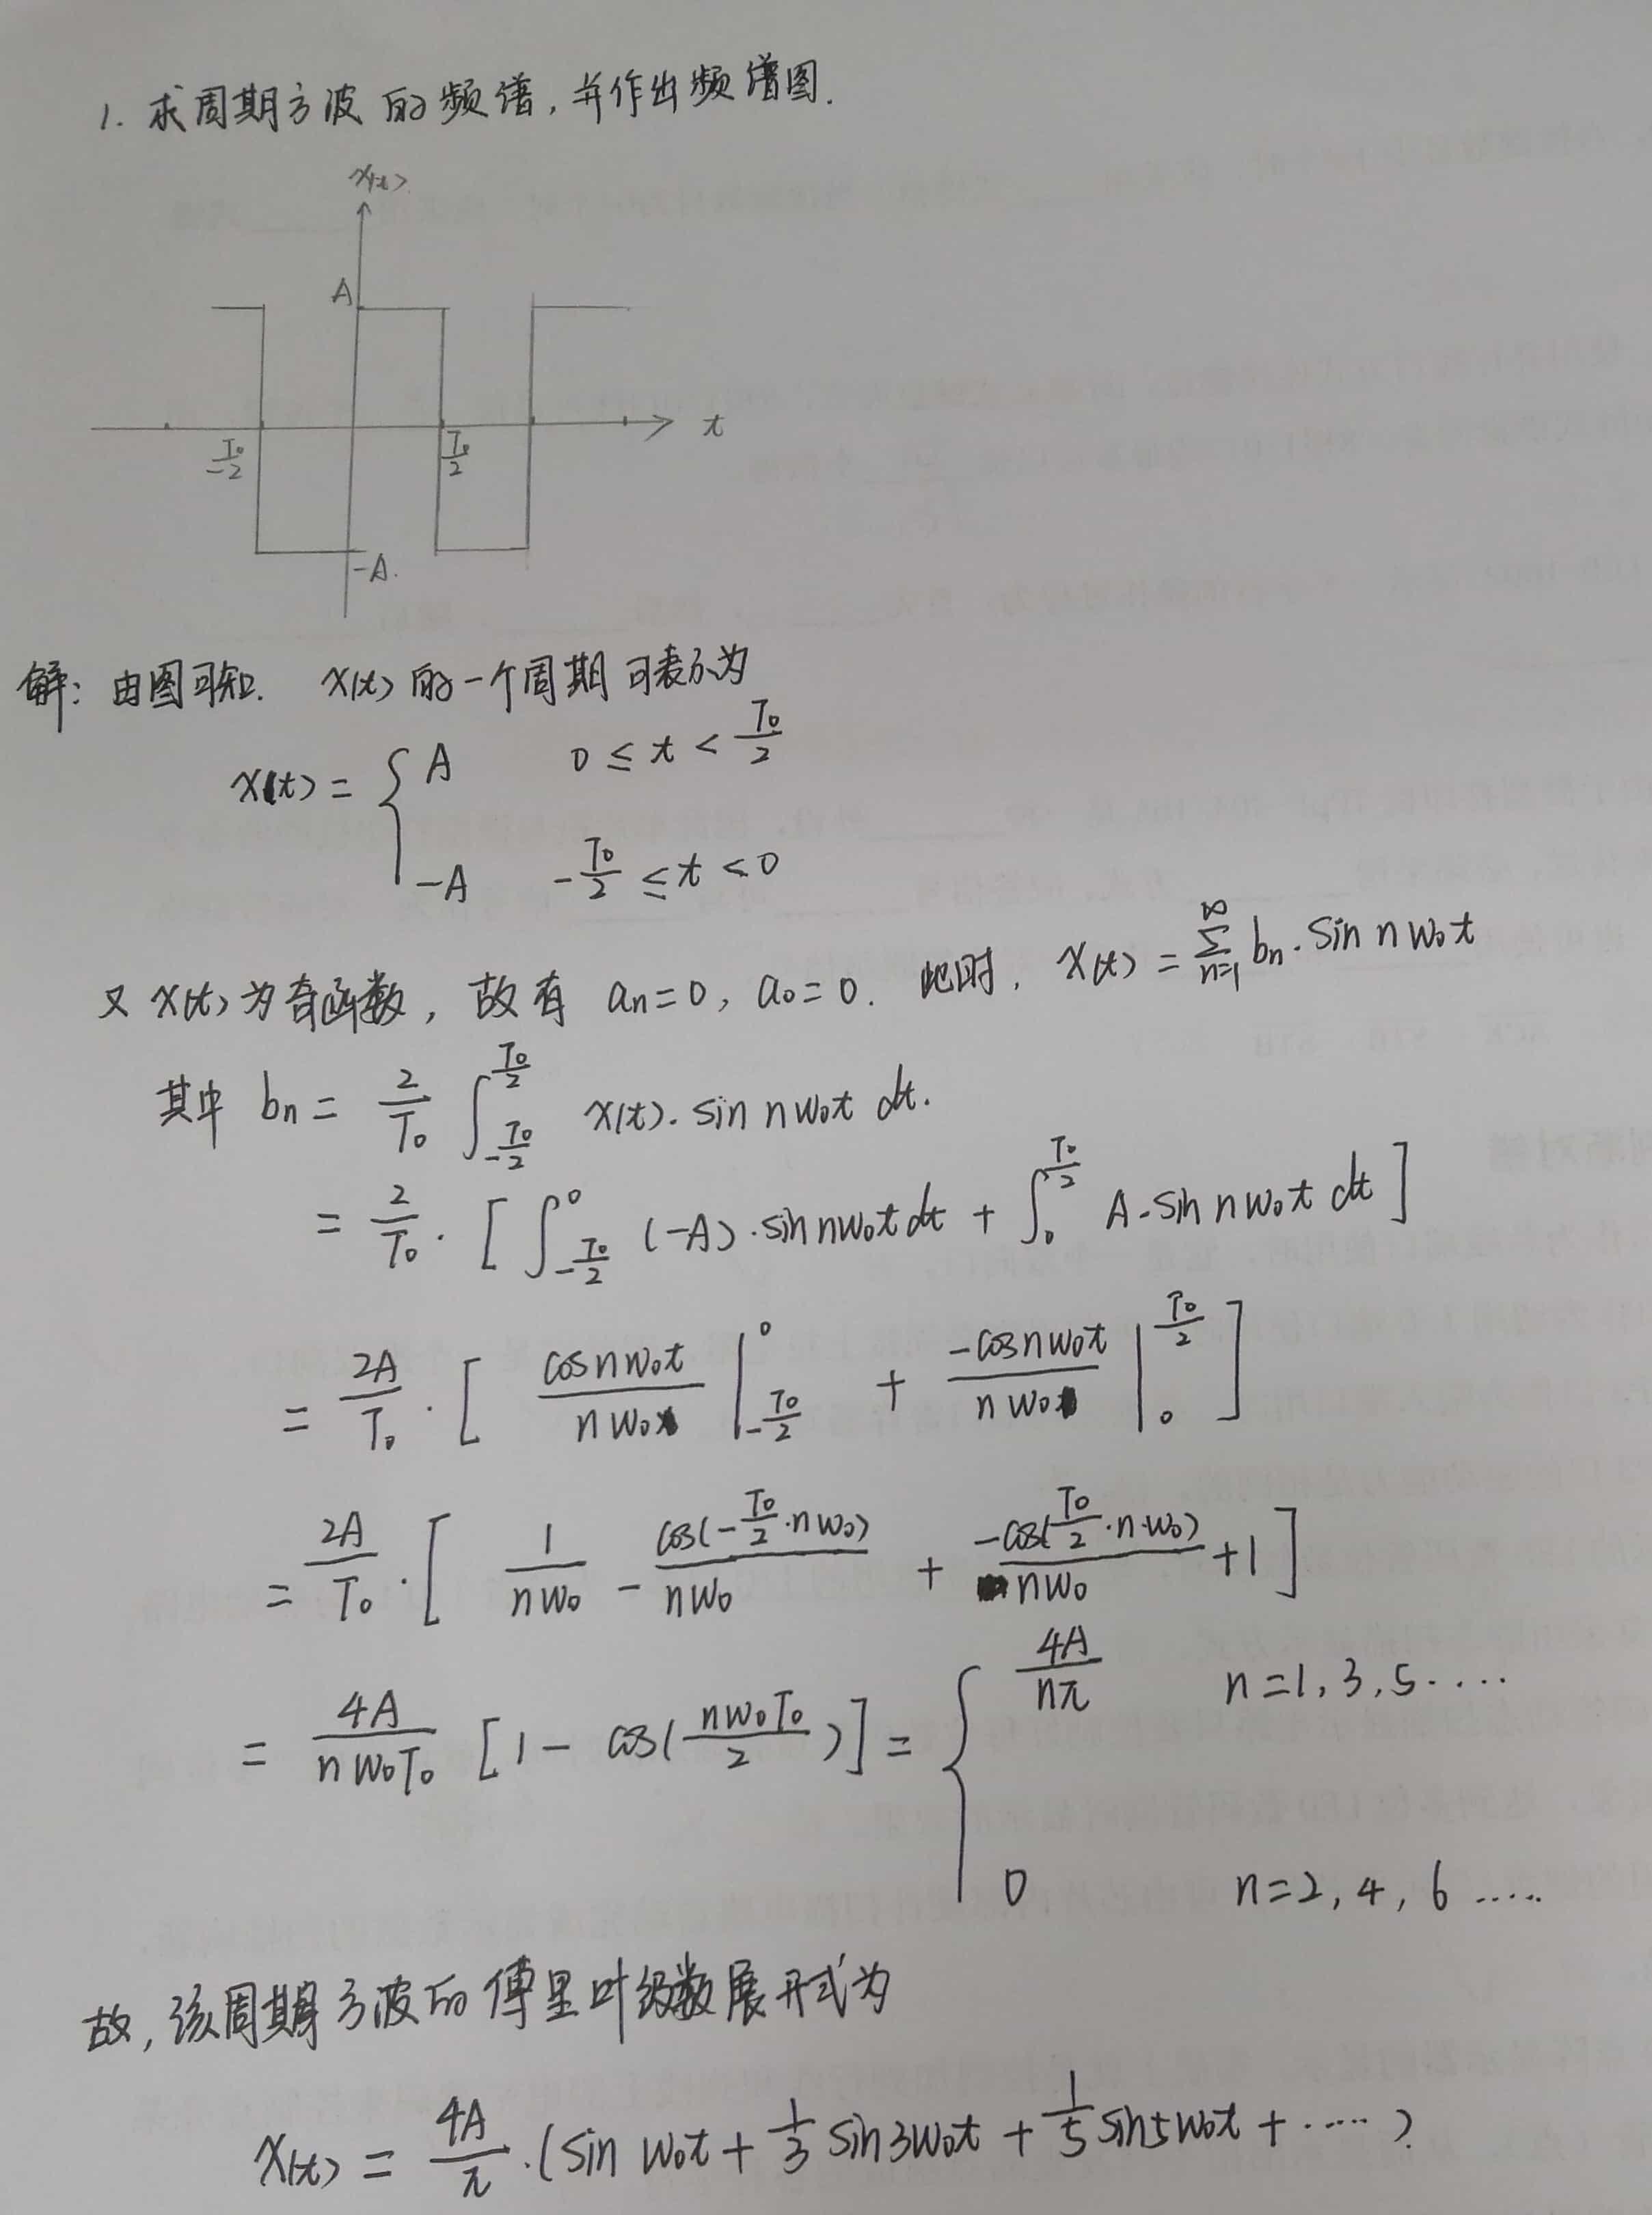 1. 求周期方波的频谱,并作出频谱图.
x(t)
A
t
-T₀/2
T₀/2
-A.
解: 由图可知. x(t) 的一个周期可表示为
x(t) = { A 0 ≤ t < T₀/2
-A -T₀/2 ≤ t < 0
又 x(t) 为奇函数, 故有 aₙ=0, a₀=0. 此时, x(t) = ∑_{n=1}^{∞} bₙ·sin nw₀t
其中 bₙ = 2/T₀ ∫_{-T₀/2}^{T₀/2} x(t)·sin nw₀t dt.
= 2/T₀ · [ ∫_{-T₀/2}^{0} (-A)·sin nw₀t dt + ∫_{0}^{T₀/2} A·sin nw₀t dt ]
= 2A/T₀ · [ cos nw₀t / nw₀ |_{-T₀/2}^{0} + -cos nw₀t / nw₀ |_{0}^{T₀/2} ]
= 2A/T₀ · [ 1/nw₀ - cos(-T₀/2·nw₀)/nw₀ + -cos(T₀/2·n·w₀)/nw₀ +1 ]
= 4A/nw₀T₀ [1 - cos(nw₀T₀/2)] = { 4A/nπ n=1,3,5·····
0 n=2,4,6·····
故, 该周期方波的傅里叶级数展开式为
x(t) = 4A/π ·(sin w₀t + 1/3 sin3w₀t + 1/5 sin5w₀t + ·····)